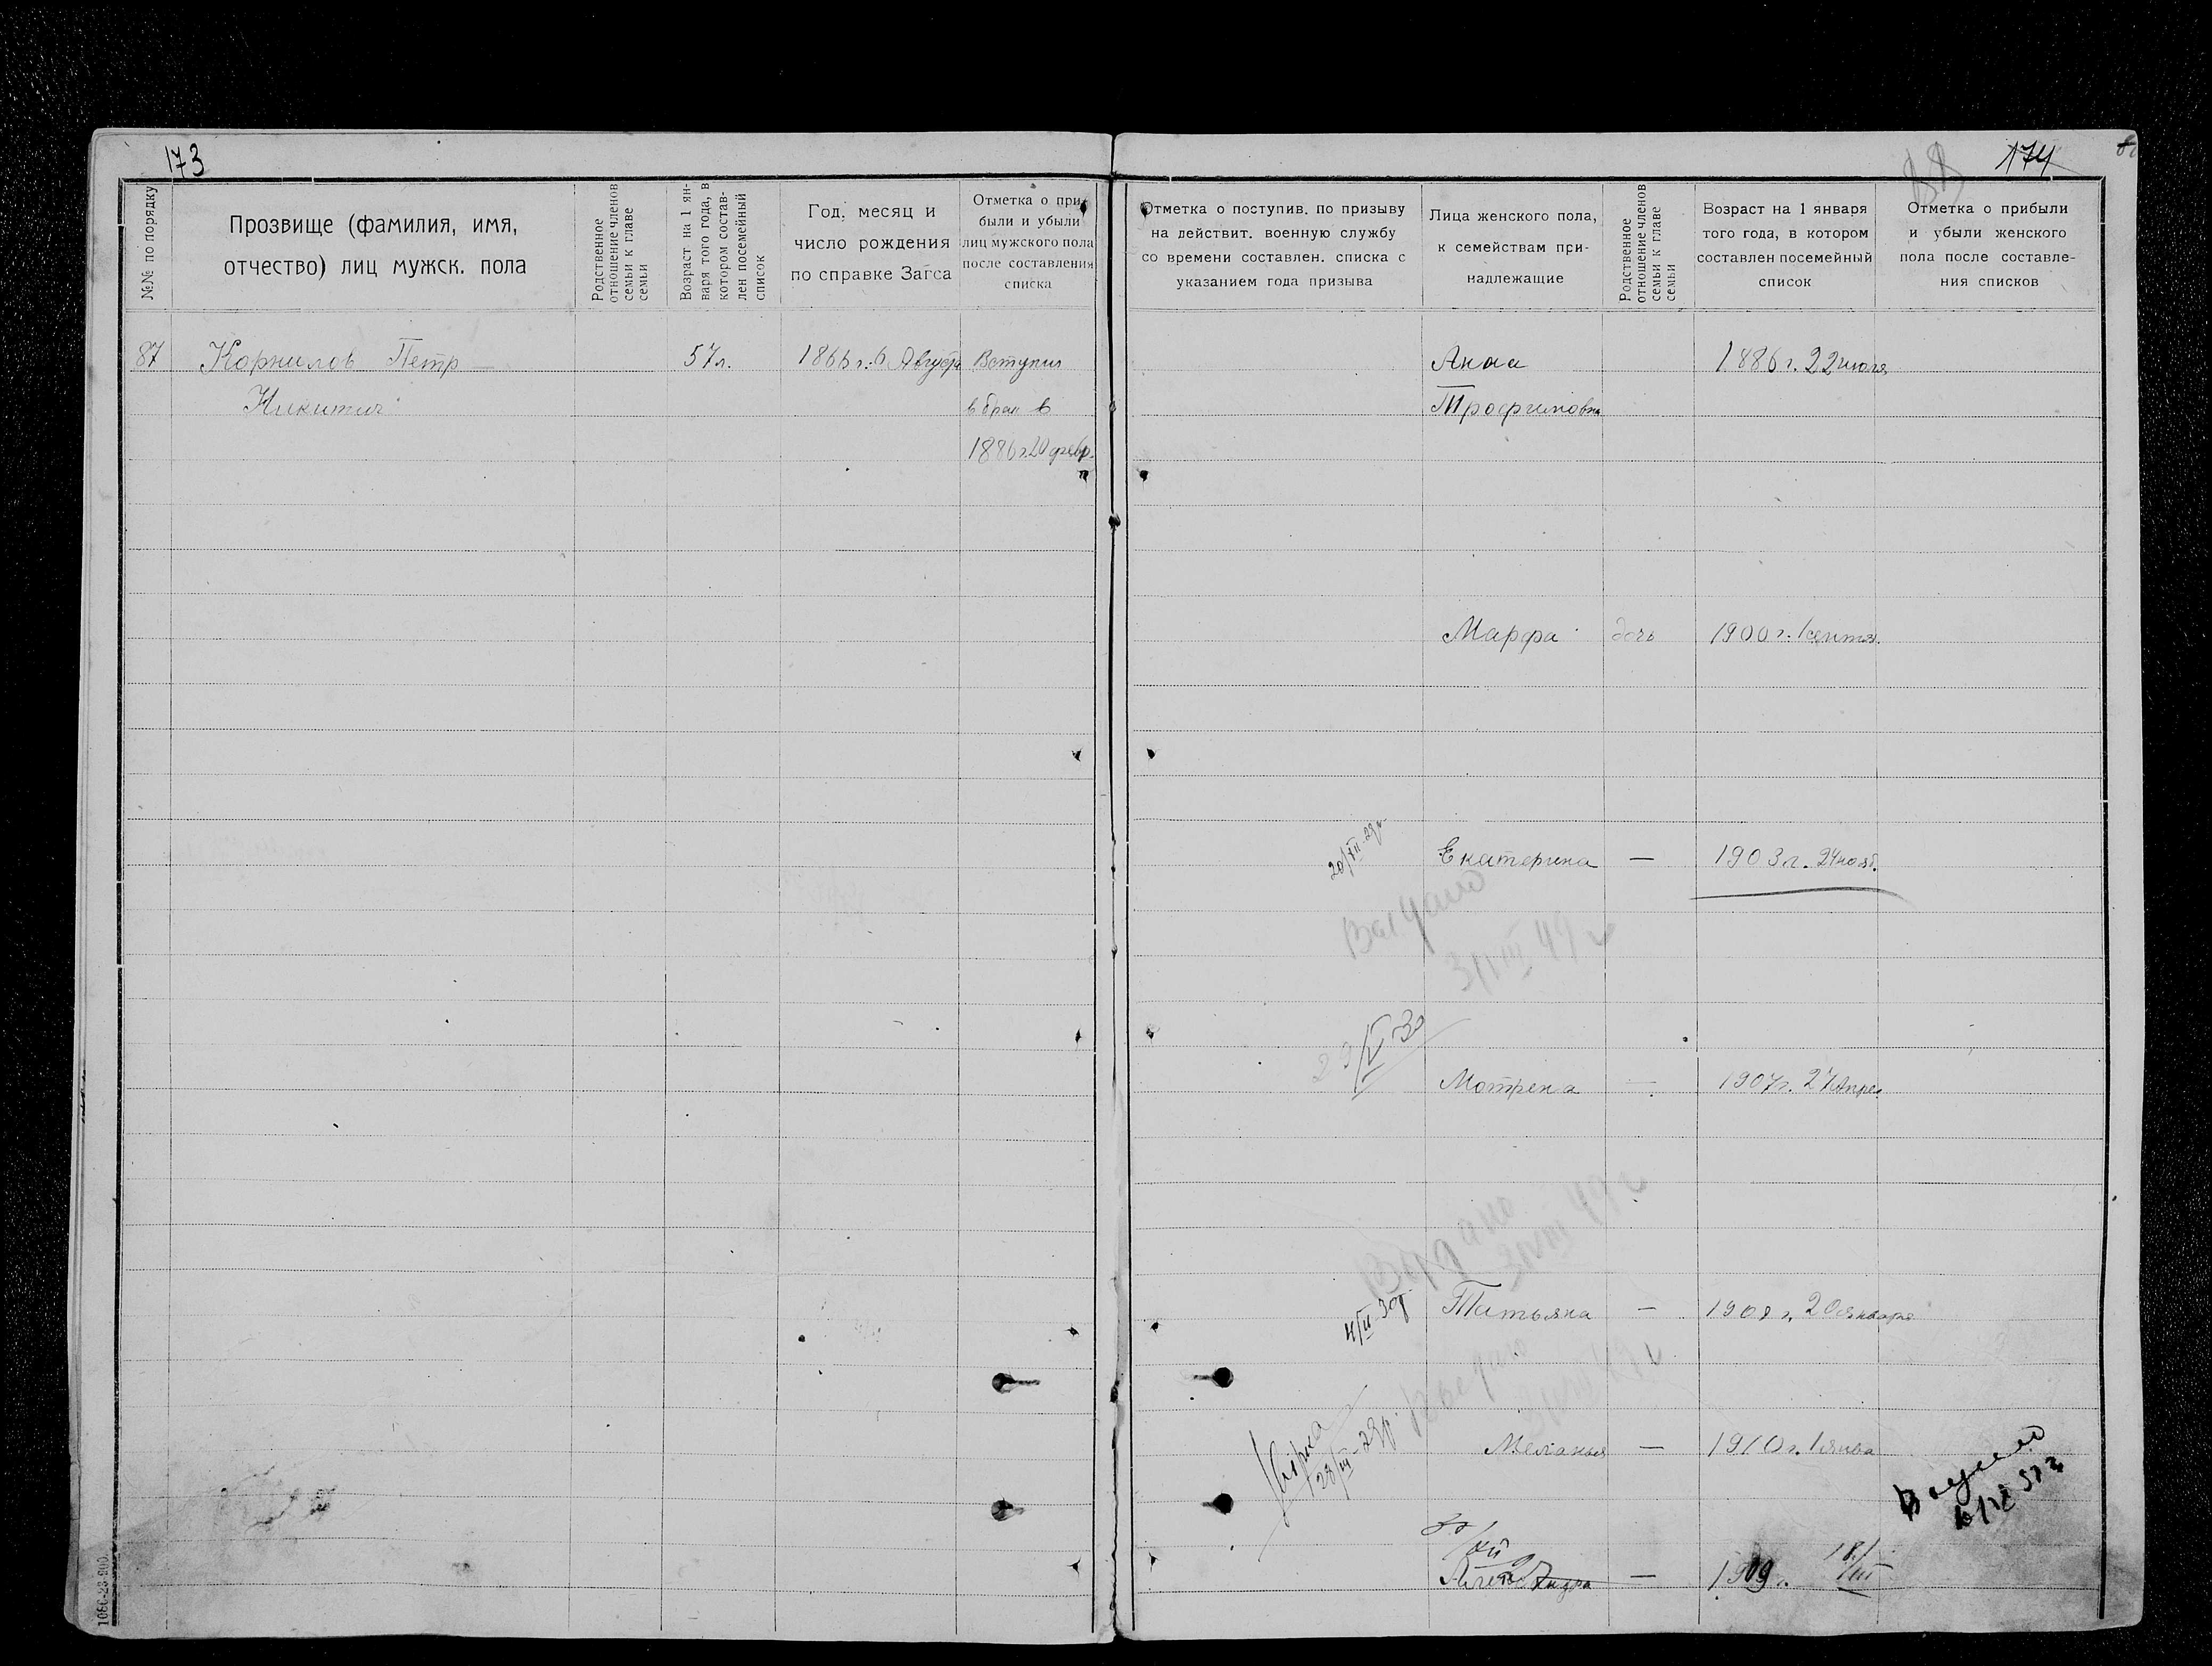 173
№№ по порядку
Прозвище (фамилия, имя,
отчество) лиц мужск. пола
Родственное
отношение членов
семьи к главе
семьи
Возраст на 1 ян-
варя того года, в
котором состав-
лен посемейный
список
Год, месяц и
число рождения
по справке Загса
Отметка о при-
были и убыли
лиц мужского пола
после составления
списка
87 Корнилов Петр — 57 л. 1866 г. 6 Августа Вступил
Никитич в брак в
1886 г. 20 февр.
1080-23-900.
174
Отметка о поступив. по призыву
на действит. военную службу
со времени составлен. списка с
указанием года призыва
Лица женского пола,
к семействам при-
надлежащие
Родственное
отношение членов
семьи к главе
семьи
Возраст на 1 января
того года, в котором
составлен посемейный
список
Отметка о прибыли
и убыли женского
пола после составле-
ния списков
Анна 1886 г. 22 июля
Трофимовна
Марфа дочь 1900 г. 1 сентя.
20/XII-29 г.
Екатерина — 1903 г. 24 нояб.
Выдано
3/VIII 49 г
29/IV 30
Мотрена — 1907 г. 27 Апрел
Выдано
3/VIII 49 г
4/II-30 г
Татьяна — 1908 г. 20 января
Выдано
3/VIII 49 г
28/III-29 г.
Меланья — 1910 г. 1 янва
Выдано
Александра — 1909 г. 18/III